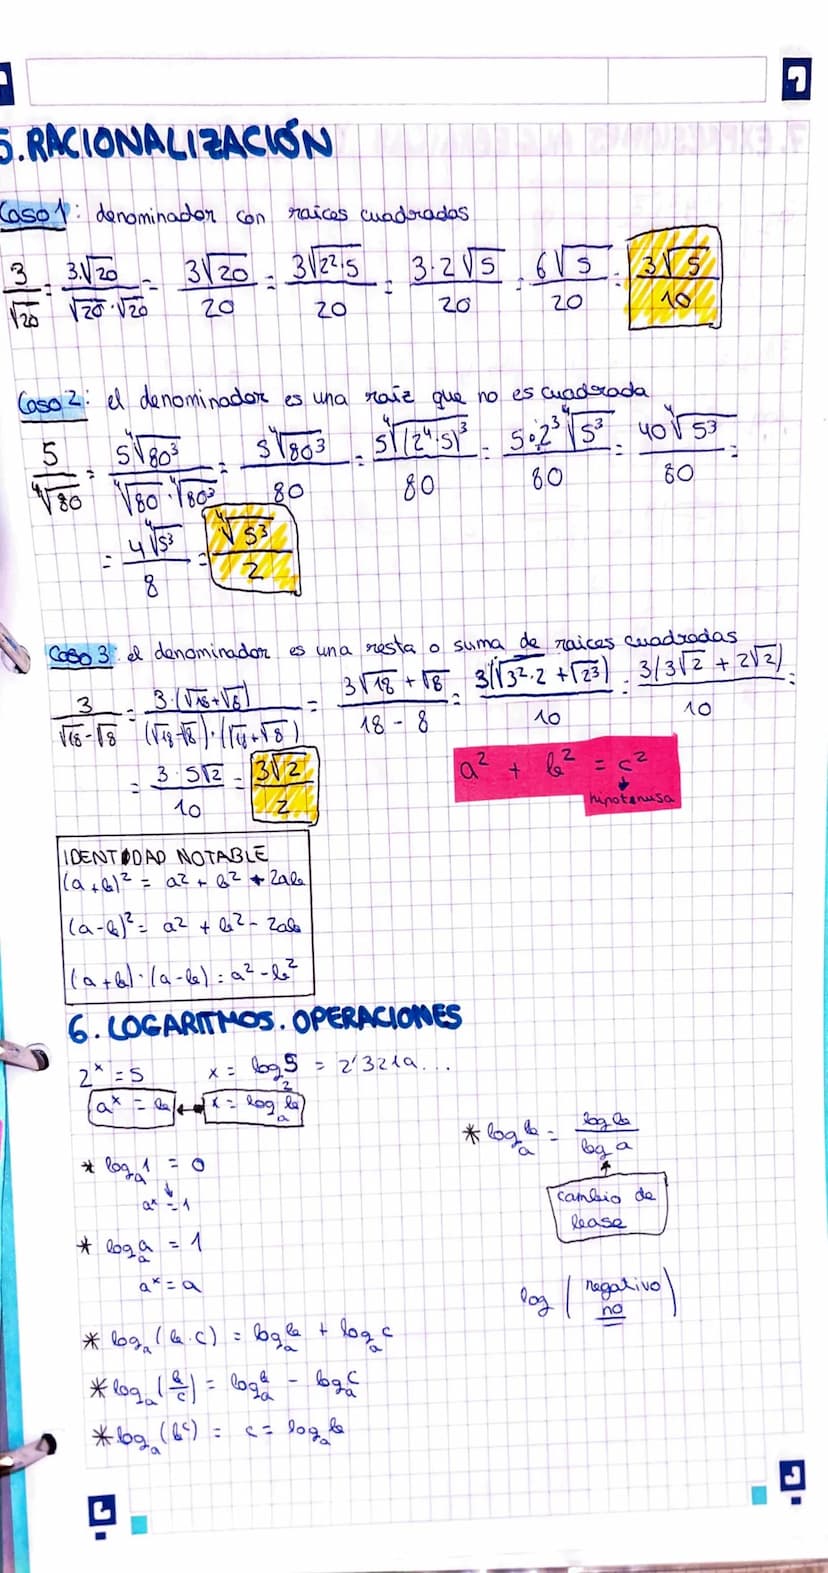 5.RACIONALIZACIÓN
Caso 1: denominador con raices cuadradas
3/√20 = 3·√20/√20·√20 = 3√20/20 = 3√2²·5/20 = 3·2√5/20 = 6√5/20 = 3√5/10
Caso 2: el denominador es una raíz que no es cuadrada
5/⁴√80 = 5⁴√80³/⁴√80·⁴√80³ = 5⁴√80³/80 = 5⁴√(2⁴·5)³/80 = 5·2³⁴√5³/80 = 40⁴√5³/80 =
= 4⁴√5³/8 = ⁴√5³/2
Caso 3: el denominador es una resta o suma de raices cuadradas
3/√18-√8 = 3·(√18+√8)/(√18-√8)·(√18+√8) = 3√18+√8/18-8 = 3(√3²·2+√2³)/10 = 3(3√2+2√2)/10 =
= 3·5√2/10 = 3√2/2
a² + b² = c²
hipotenusa
IDENTIDAD NOTABLE
(a+b)² = a² + b² + 2ab
(a-b)² = a² + b² - 2ab
(a+b)·(a-b) = a²-b²
6. LOGARITMOS. OPERACIONES
2ˣ = 5 x = log₂5 = 2'3219...
aˣ = b ↔ x = logₐb
* logₐb = log b/log a
cambio de
base
* logₐ1 = 0
aˣ = 1
* logₐa = 1
aˣ = a
log (negativo
no)
* logₐ(b·c) = logₐb + logₐc
* logₐ(b/c) = logₐb - logₐc
* logₐ(bᶜ) = c = logₐb